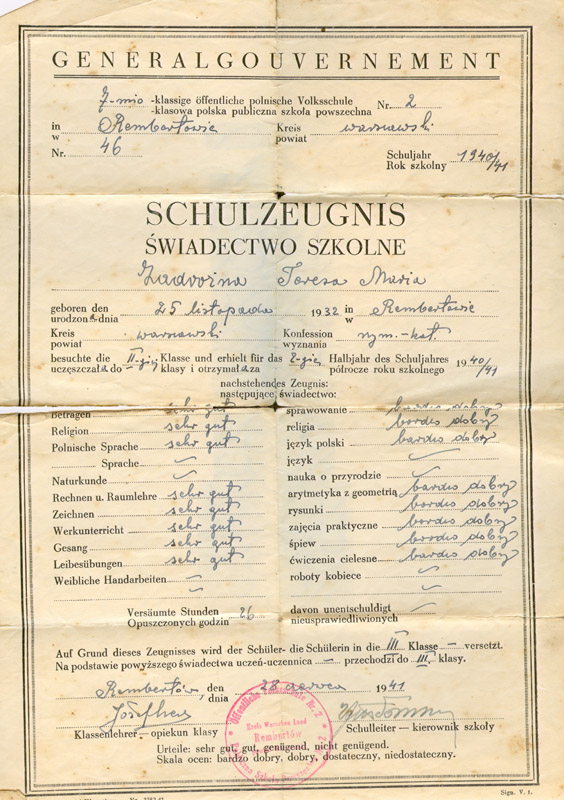 GENERALGOUVERNEMENT
7-mio -klassige öffentliche polnische Volksschule Nr. 2
-klasowa polska publiczna szkoła powszechna
in Rembertowie Kreis warszawski
w powiat
Nr. 46
Schuljahr 1940/41
Rok szkolny
SCHULZEUGNIS
ŚWIADECTWO SZKOLNE
Teresa Maria
geboren den 25 listopada 1932 in Rembertowie
urodzona dnia w
Kreis warszawski Konfession rzym.-kat.
powiat wyznania
besuchte die II-giej Klasse und erhielt für das 2-gie Halbjahr des Schuljahres 1940/41
uczęszczała do klasy i otrzymała za półrocze roku szkolnego
nachstehendes Zeugnis:
następujące świadectwo:
Betragen sehr gut sprawowanie bardzo dobry
Religion sehr gut religia bardzo dobry
Polnische Sprache sehr gut język polski bardzo dobry
Sprache język
Naturkunde nauka o przyrodzie
Rechnen u. Raumlehre sehr gut arytmetyka z geometrią bardzo dobry
Zeichnen sehr gut rysunki bardzo dobry
Werkunterricht sehr gut zajęcia praktyczne bardzo dobry
Gesang sehr gut śpiew bardzo dobry
Leibesübungen sehr gut ćwiczenia cielesne bardzo dobry
Weibliche Handarbeiten roboty kobiece
Versäumte Stunden 26 davon unentschuldigt
Opuszczonych godzin nieusprawiedliwionych
Auf Grund dieses Zeugnisses wird der Schüler- die Schülerin in die III Klasse — versetzt.
Na podstawie powyższego świadectwa uczeń-uczennica — przechodzi do III klasy.
Rembertów, den 28 czerwca 1941
dnia
Klassenlehrer — opiekun klasy Schulleiter — kierownik szkoły
Öffentliche Volksschule Nr. 2
Kreis Warschau Land
Rembertów
Urteile: sehr gut, gut, genügend, nicht genügend.
Skala ocen: bardzo dobry, dobry, dostateczny, niedostateczny.
Sign. V. 1.